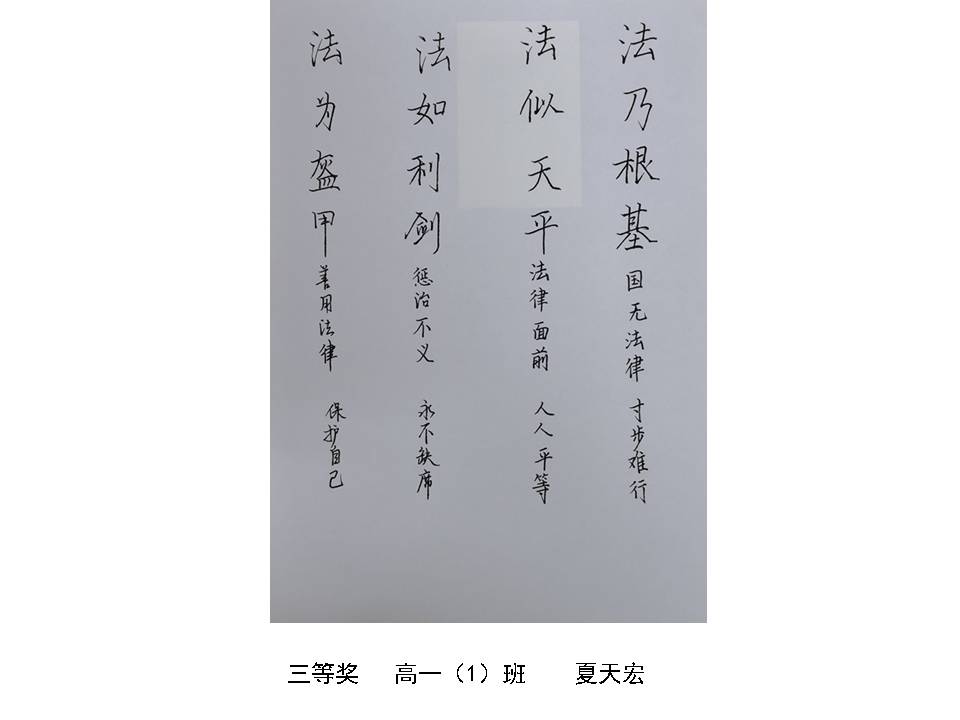 法乃根基国无法律 寸步难行
法似天平法律面前 人人平等
法如利剑惩治不义 永不缺席
法为盔甲善用法律 保护自己
三等奖 高一（1）班 夏天宏